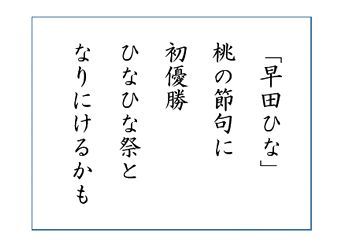 「早田ひな」
桃の節句に
初優勝
ひなひな祭と
なりにけるかも